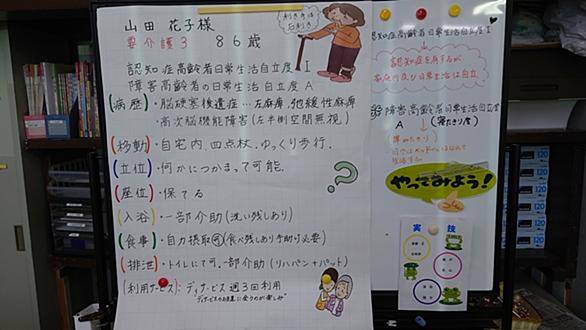 山田 花子様
利き手は
右利き
要介護3 86歳
認知症高齢者日常生活自立度 I
障害高齢者の日常生活自立度 A
(病歴)・脳梗塞後遺症…左麻痺、弛緩性麻痺
・高次脳機能障害(左半側空間無視)
(移動)・自宅内、四点杖、ゆっくり歩行.
(立位)・何かにつかまって可能.
(座位)・保てる
(入浴)・一部介助(洗い残しあり)
(食事)・自力摂取可(食べ残しあり手助け必要)
(排泄)・トイレにて可.一部介助(リハパン+パット)
(利用サービス):デイサービス 週3回利用
認知症高齢者日常生活自立度 I
認知症を有するが
家庭内及び日常生活は自立
障害高齢者日常生活自立度
A
(寝たきり度)
準寝たきり
やってみよう!
実技